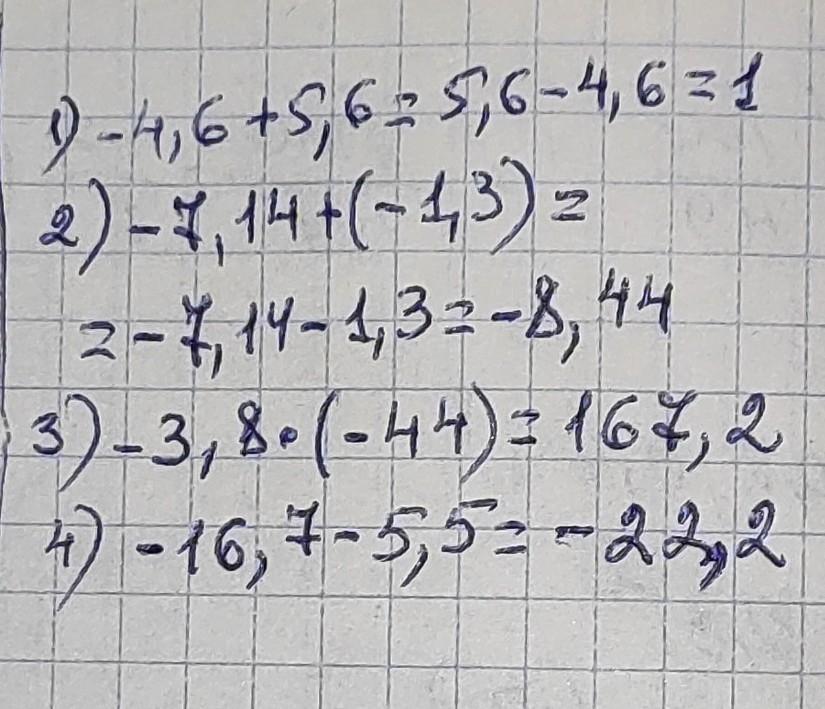 1) -4,6+5,6=5,6-4,6=1
2) -7,14+(-1,3)=
=-7,14-1,3=-8,44
3) -3,8·(-44)=167,2
4) -16,7-5,5=-22,2